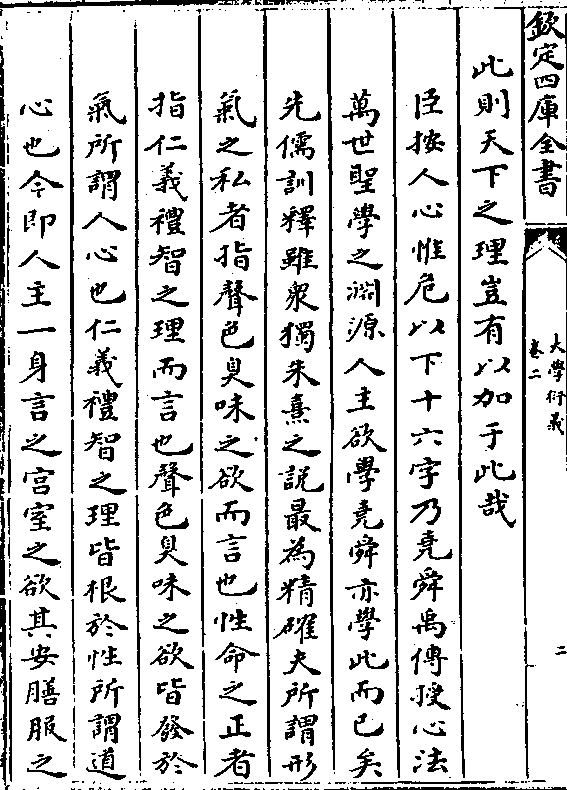 欽定四庫全書
大學衍義
卷二
二
此則天下之理豈有以加于此哉
臣按人心惟危以下十六字乃堯舜禹傳授心法
萬世聖學之淵源人主欲學堯舜亦學此而已矣
先儒訓釋雖衆獨朱熹之說最為精確夫所謂形
氣之私者指聲色臭味之欲而言也性命之正者
指仁義禮智之理而言也聲色臭味之欲皆發於
氣所謂人心也仁義禮智之理皆根於性所謂道
心也今即人主一身言之宮室之欲其安膳服之